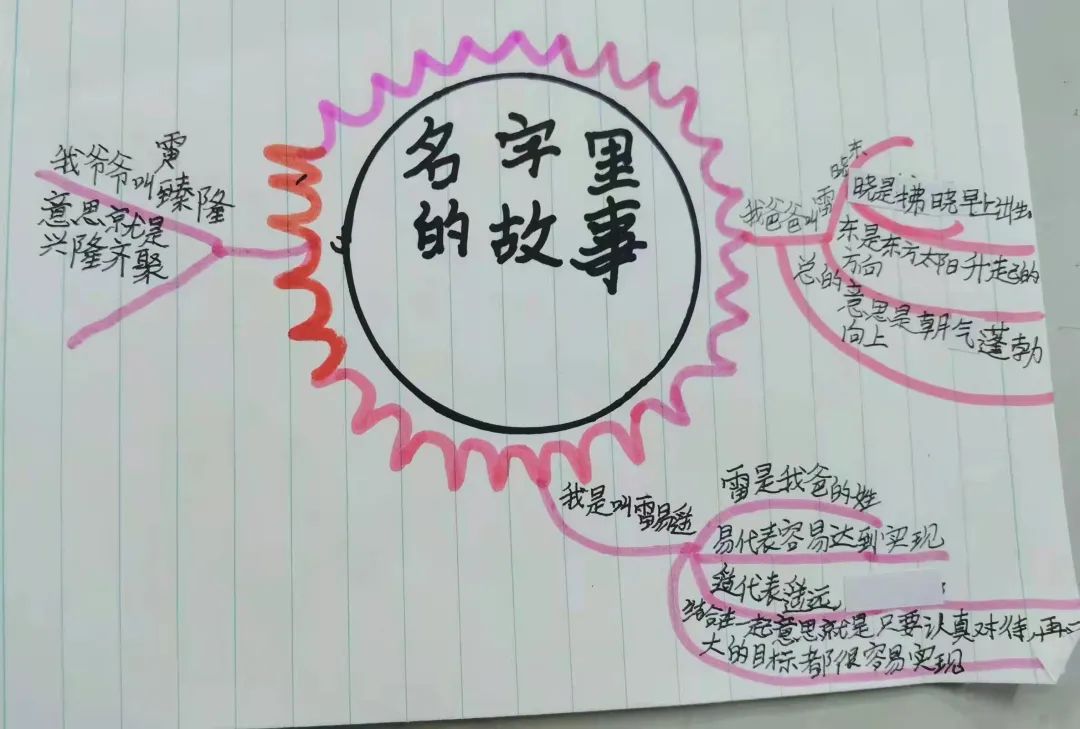 名字里
的故事
我爷爷叫雷臻隆
意思就是
兴隆齐聚
我爸爸叫雷晓东
晓是拂晓早上出生
东是东方太阳升起的
方向
总的意思是朝气蓬勃
向上
我是叫雷易遥
雷是我爸的姓
易代表容易达到实现
遥代表遥远
结合在一起意思就是只要认真对待,再
大的目标都很容易实现